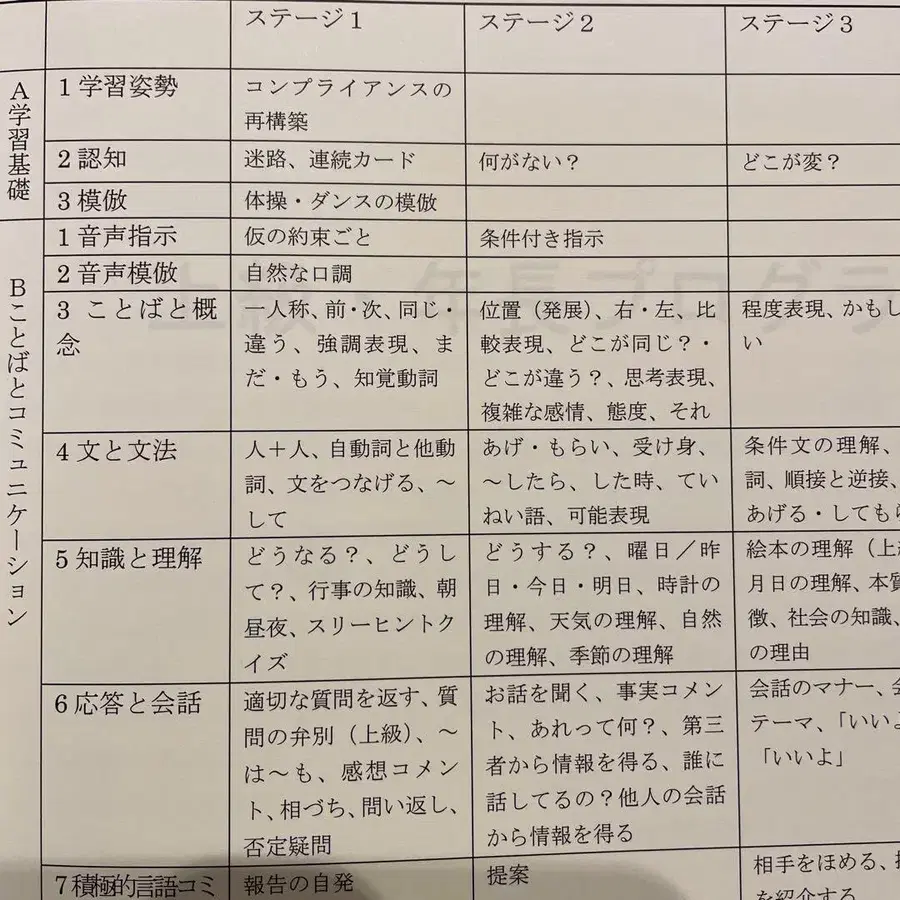 ステージ1 ステージ2 ステージ3
A学習基礎
1学習姿勢
コンプライアンスの
再構築
2認知
迷路、連続カード
何がない？
どこが変？
3模倣
体操・ダンスの模倣
Bことばとコミュニケーション
1音声指示
仮の約束ごと
条件付き指示
2音声模倣
自然な口調
3 ことばと概
念
一人称、前・次、同じ・
違う、強調表現、ま
だ・もう、知覚動詞
位置（発展）、右・左、比
較表現、どこが同じ？・
どこが違う？、思考表現、
複雑な感情、態度、それ
程度表現、かもし
い
4文と文法
人＋人、自動詞と他動
詞、文をつなげる、～
して
あげ・もらい、受け身、
～したら、した時、てい
ねい語、可能表現
条件文の理解、
詞、順接と逆接、
あげる・してもら
5知識と理解
どうなる？、どうし
て？、行事の知識、朝
昼夜、スリーヒントク
イズ
どうする？、曜日／昨
日・今日・明日、時計の
理解、天気の理解、自然
の理解、季節の理解
絵本の理解（上
月日の理解、本質
徴、社会の知識、
の理由
6応答と会話
適切な質問を返す、質
問の弁別（上級）、～
は～も、感想コメン
ト、相づち、問い返し、
否定疑問
お話を聞く、事実コメン
ト、あれって何？、第三
者から情報を得る、誰に
話してるの？他人の会話
から情報を得る
会話のマナー、会
テーマ、「いいよ
「いいよ」
7積極的言語コミ
報告の自発
提案
相手をほめる、
を紹介する